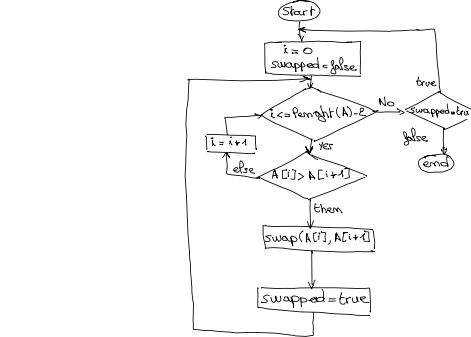 Start
i = 0
swapped = false
i <= Penright(A)-2
No
swapped=tru
true
false
end
yes
i = i+1
else
A[i] > A[i+1]
then
swap(A[i], A[i+1]
swapped = true